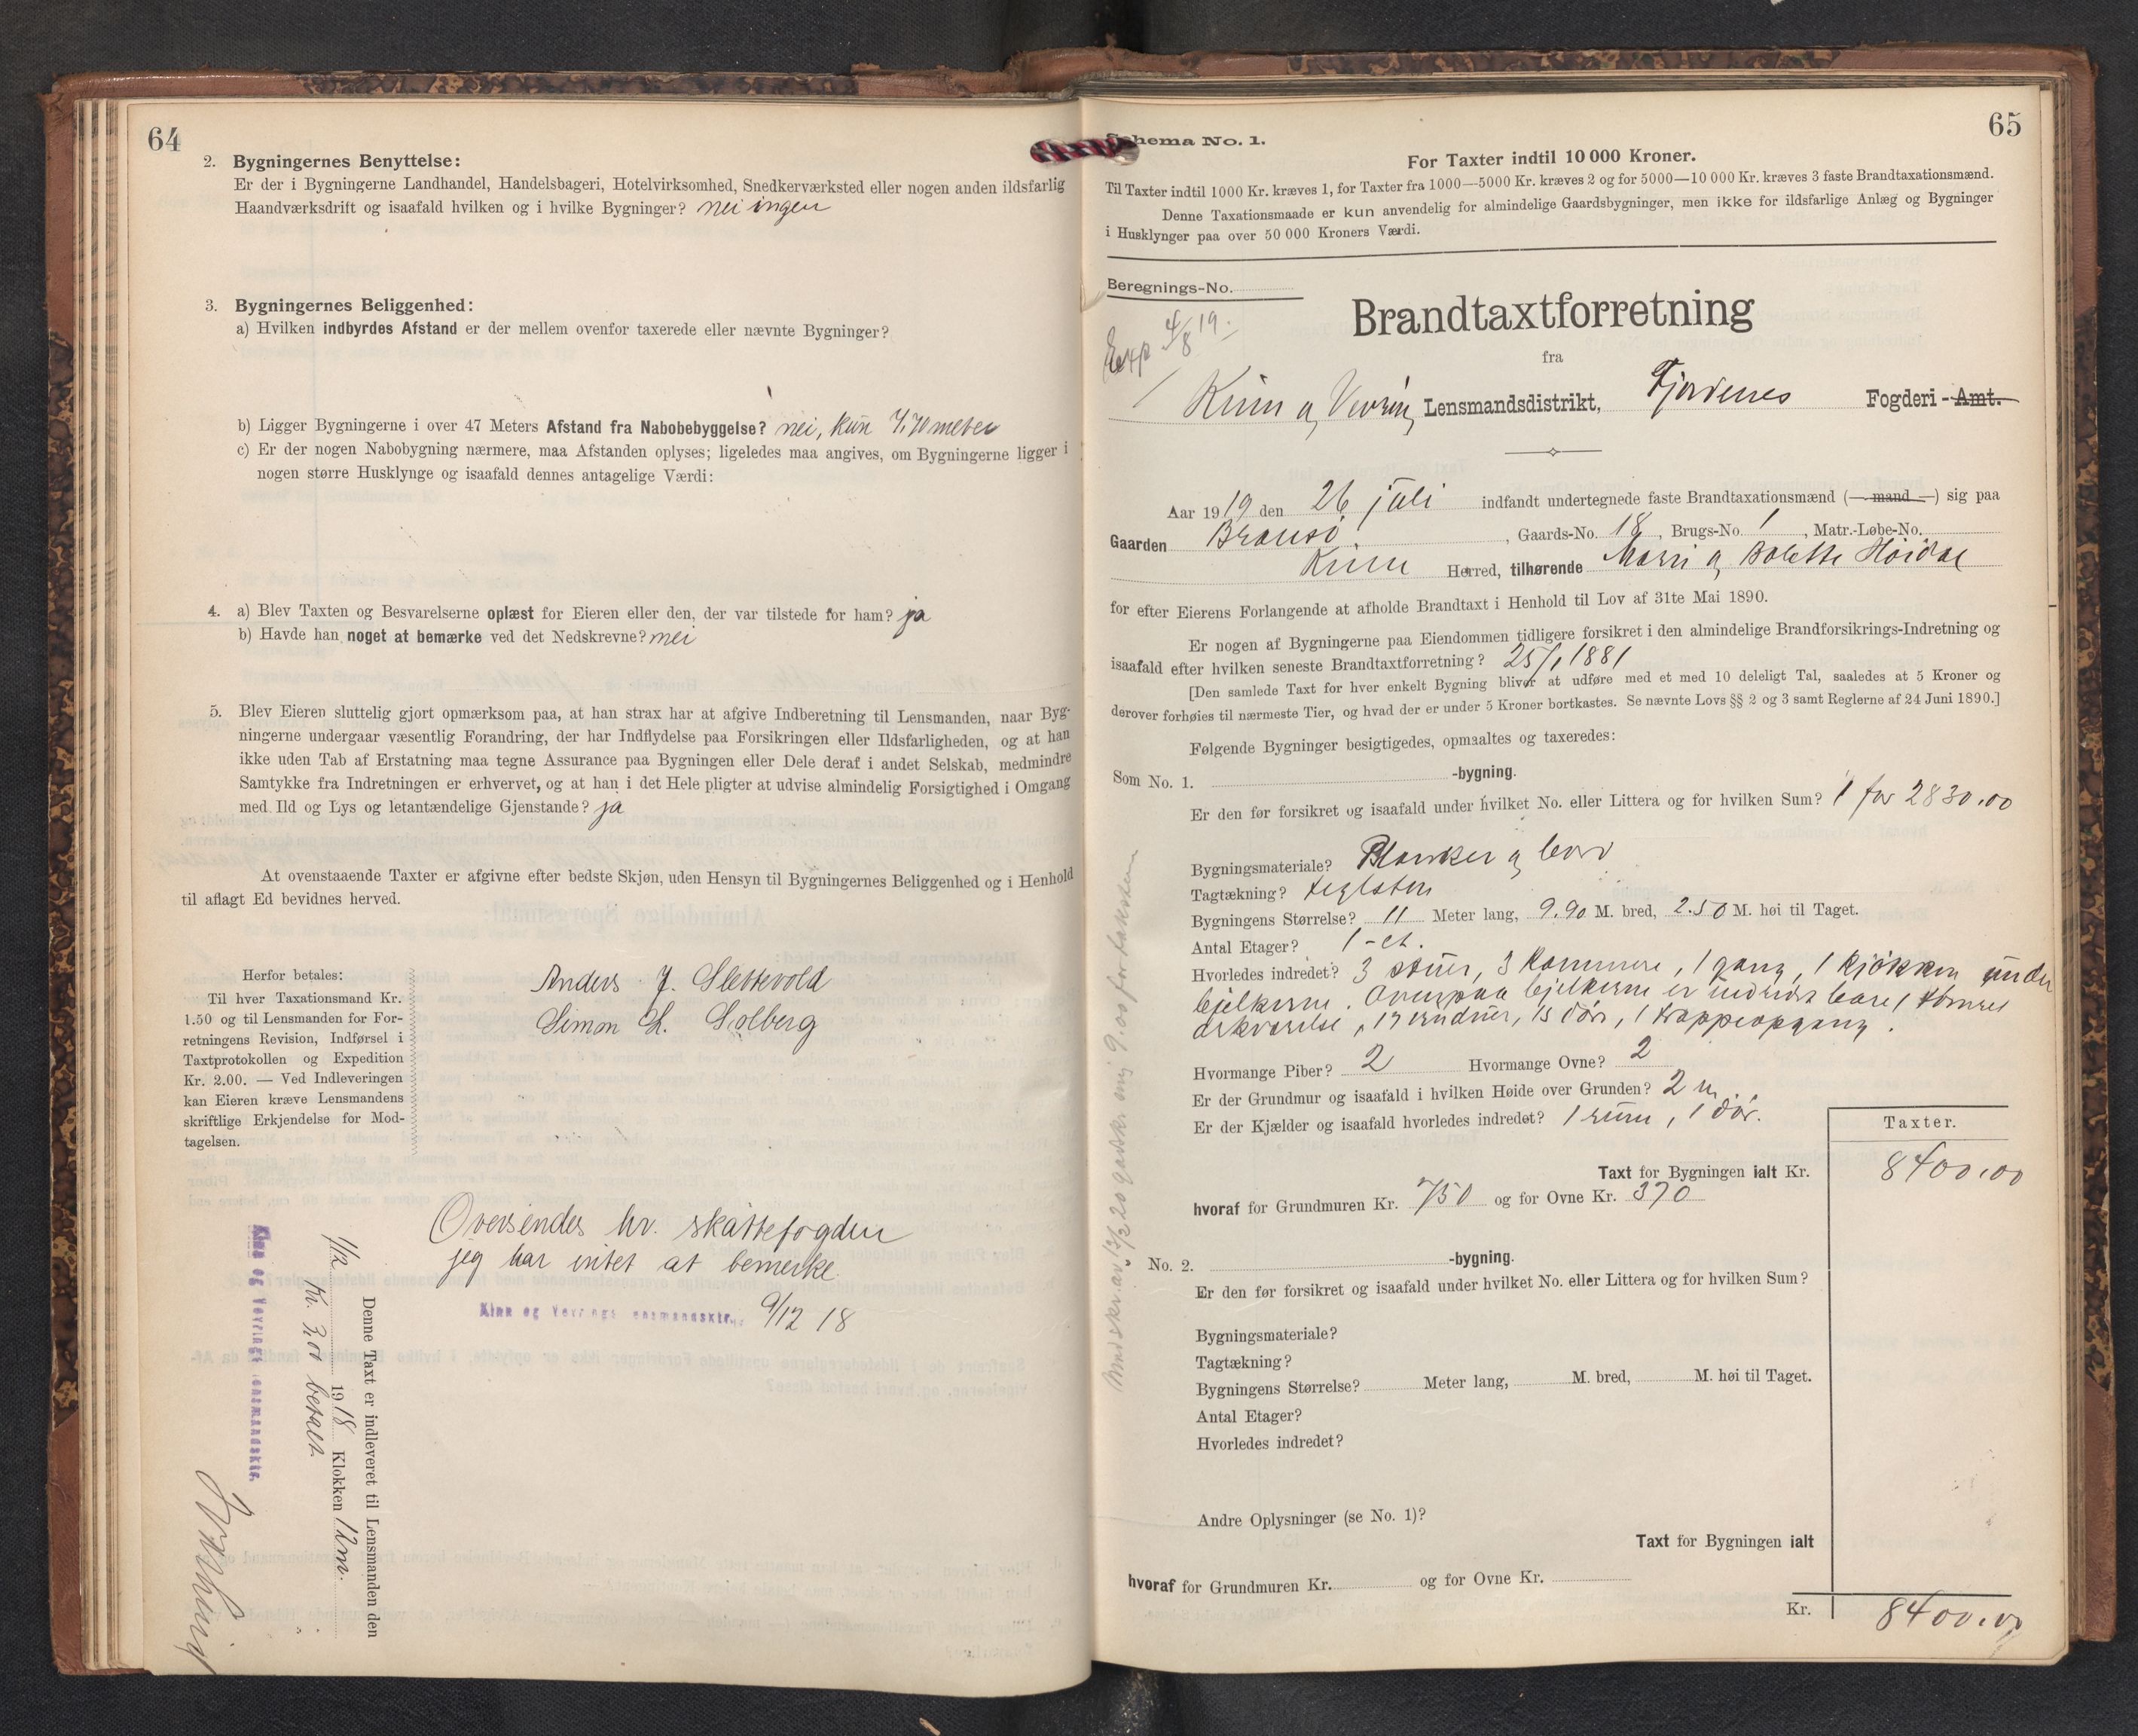 64
2. Bygningernes Benyttelse:
Er der i Bygningerne Landhandel, Handelsbageri, Hotelvirksomhed, Snedkerværksted eller nogen anden ildsfarlig
Haandværksdrift og isaafald hvilken og i hvilke Bygninger? nei ingen
3. Bygningernes Beliggenhed:
a) Hvilken indbyrdes Afstand er der mellem ovenfor taxerede eller nævnte Bygninger?
b) Ligger Bygningerne i over 47 Meters Afstand fra Nabobebyggelse? nei, kun 4,70 meter
c) Er der nogen Nabobygning nærmere, maa Afstanden oplyses; ligeledes maa angives, om Bygningerne ligger i
nogen større Husklynge og isaafald dennes antagelige Værdi:
4. a) Blev Taxten og Besvarelserne oplæst for Eieren eller den, der var tilstede for ham? ja
b) Havde han noget at bemærke ved det Nedskrevne? nei
5. Blev Eieren sluttelig gjort opmærksom paa, at han strax har at afgive Indberetning til Lensmanden, naar Byg-
ningerne undergaar væsentlig Forandring, der har Indflydelse paa Forsikringen eller Ildsfarligheden, og at han
ikke uden Tab af Erstatning maa tegne Assurance paa Bygningen eller Dele deraf i andet Selskab, medmindre
Samtykke fra Indretningen er erhvervet, og at han i det Hele pligter at udvise almindelig Forsigtighed i Omgang
med Ild og Lys og letantændelige Gjenstande? ja
At ovenstaaende Taxter er afgivne efter bedste Skjøn, uden Hensyn til Bygningernes Beliggenhed og i Henhold
til aflagt Ed bevidnes herved.
Herfor betales:
Til hver Taxationsmand Kr.
1.50 og til Lensmanden for For-
retningens Revision, Indførsel i
Taxtprotokollen og Expedition
Kr. 2.00. — Ved Indleveringen
kan Eieren kræve Lensmandens
skriftlige Erkjendelse for Mod-
tagelsen.
Anders J. Slettevold
Simon L. Solberg
Oversendes hr. skattefogden
jeg har intet at bemerke
Kinn og Vevrings lensmandsktr. 9/12 18
Denne Taxt er indleveret til Lensmanden den
1/12 1918 Klokken 12 m.
Kr. 3,01 betalt
Kinn og Vevrings lensmandsktr.
65
Schema No. 1.
For Taxter indtil 10 000 Kroner.
Til Taxter indtil 1000 Kr. kræves 1, for Taxter fra 1000—5000 Kr. kræves 2 og for 5000—10 000 Kr. kræves 3 faste Brandtaxationsmænd.
Denne Taxationsmaade er kun anvendelig for almindelige Gaardsbygninger, men ikke for ildsfarlige Anlæg og Bygninger
i Husklynger paa over 50 000 Kroners Værdi.
Beregnings-No.
Exp 4/8 19.
Brandtaxtforretning
fra
Kinn og Vevring Lensmandsdistrikt, Fjordenes Fogderi - Amt.
Aar 1919 den 26 juli indfandt undertegnede faste Brandtaxationsmænd (— mand —) sig paa
Gaarden Bransø, Gaards-No. 18, Brugs-No. 1, Matr.-Løbe-No.
Kinn Herred, tilhørende Marri og Bolette Høidal
for efter Eierens Forlangende at afholde Brandtaxt i Henhold til Lov af 31te Mai 1890.
Er nogen af Bygningerne paa Eiendommen tidligere forsikret i den almindelige Brandforsikrings-Indretning og
isaafald efter hvilken seneste Brandtaxtforretning? 25/1 1881
[Den samlede Taxt for hver enkelt Bygning bliver at udføre med et med 10 deleligt Tal, saaledes at 5 Kroner og
derover forhøies til nærmeste Tier, og hvad der er under 5 Kroner bortkastes. Se nævnte Lovs §§ 2 og 3 samt Reglerne af 24 Juni 1890.]
Følgende Bygninger besigtigedes, opmaaltes og taxeredes:
Som No. 1. -bygning.
Er den før forsikret og isaafald under hvilket No. eller Littera og for hvilken Sum? 1 for 2830,00
Bygningsmateriale? Planker og bord
Tagtækning? teglsten
Bygningens Størrelse? 11 Meter lang, 9.90 M. bred, 2.50 M. høi til Taget.
Antal Etager? 1-et.
Hvorledes indredet? 3 stuer, 3 kammere, 1 gang, 1 kjøkken under
bjelkerne. Ovenpaa bjelkerne er indridt bare 1 tømret
arkværelse, 17 vinduer, 15 dør, 1 trappeopgang.
Hvormange Piber? 2 Hvormange Ovne? 2
Er der Grundmur og isaafald i hvilken Høide over Grunden? 2 m.
Er der Kjælder og isaafald hvorledes indredet? 1 rum, 1 dør.
Taxter.
Taxt for Bygningen ialt Kr. 8400,00
hvoraf for Grundmuren Kr. 750 og for Ovne Kr. 370
No. 2. -bygning.
Er den før forsikret og isaafald under hvilket No. eller Littera og for hvilken Sum?
Bygningsmateriale?
Tagtækning?
Bygningens Størrelse? Meter lang, M. bred, M. høi til Taget.
Antal Etager?
Hvorledes indredet?
Andre Oplysninger (se No. 1)?
Taxt for Bygningen ialt
hvoraf for Grundmuren Kr. og for Ovne Kr.
Kr. 8400,00